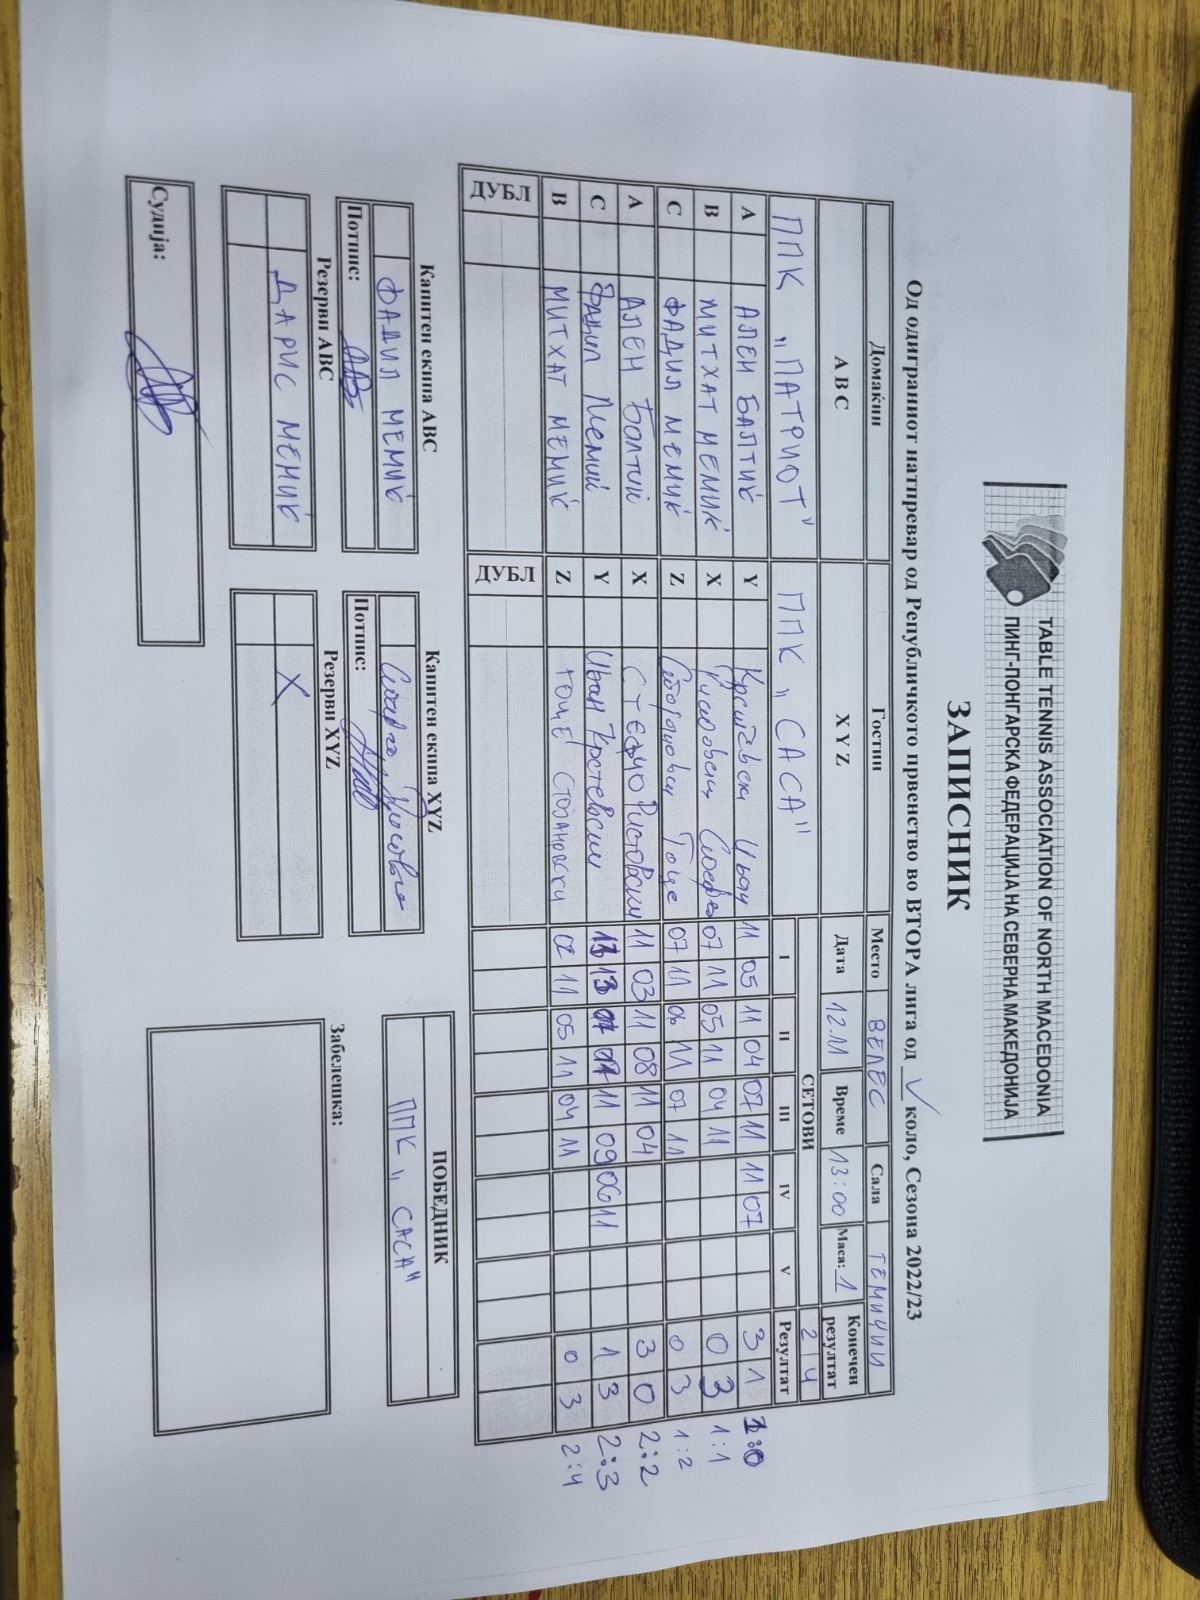 TABLE TENNIS ASSOCIATION OF NORTH MACEDONIA
ПИНГ-ПОНГАРСКА ФЕДЕРАЦИЈА НА СЕВЕРНА МАКЕДОНИЈА
ЗАПИСНИК
Од одиграниот натпревар од Републичкото првенство во ВТОРА лига од V коло, Сезона 2022/23
Домаќин Гостин Место ВЕЛЕС Сала
A B C X Y Z Дата 12.11 Време 13:00 Маса: 1 Конечен резултат
ППК „ПАТРИОТ" ППК „САСА" СЕТОВИ 2 4
I II III IV V Резултат
A АЛЕН БАЛТИЌ Y 11 05 11 04 07 11 11 07 3 1 1:0
B МИТХАТ МЕМИЌ X 07 11 05 11 04 11 0 3 1:1
C ФАДИЛ МЕМИЌ Z Гоце 07 11 06 11 07 11 0 3 1:2
A АЛЕН X СТЕФЧО Ристовски 11 03 11 08 11 04 3 0 2:2
C Фадил Y Иван Крстевски 13 11 09 06 11 1 3 2:3
B МИТХАТ МЕМИЌ Z ГОЦЕ СТОЈАНОВСКИ 02 11 05 11 04 11 0 3 2:4
ДУБЛ ДУБЛ
Капитен екипа ABC Капитен екипа XYZ ПОБЕДНИК
ФАДИЛ МЕМИЌ ППК „САСА"
Потпис: Потпис:
Резерви ABC Резерви XYZ Забелешка:
ДАРИС МЕМИЌ X
Судија: